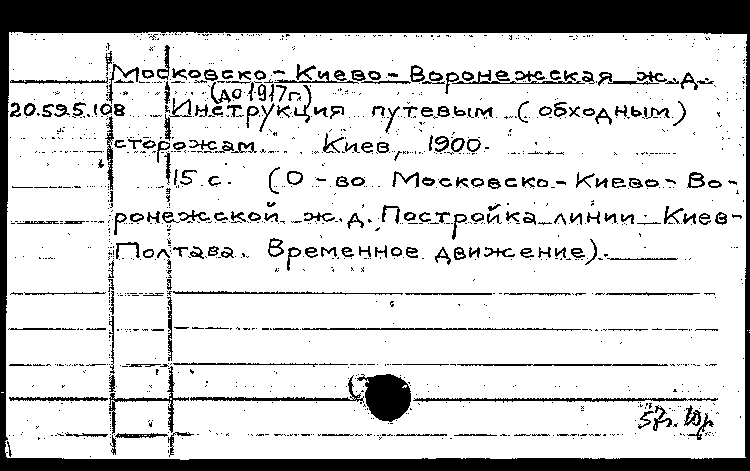 Московско-Киево-Воронежская ж.д.
(до 1917г.)
20.595.108 Инструкция путевым (обходным)
сторожам. Киев, 1900.
15 с. (О-во Московско-Киево-Во-
ронежской ж.д. Постройка линии Киев-
Полтава. Временное движение).
57г.